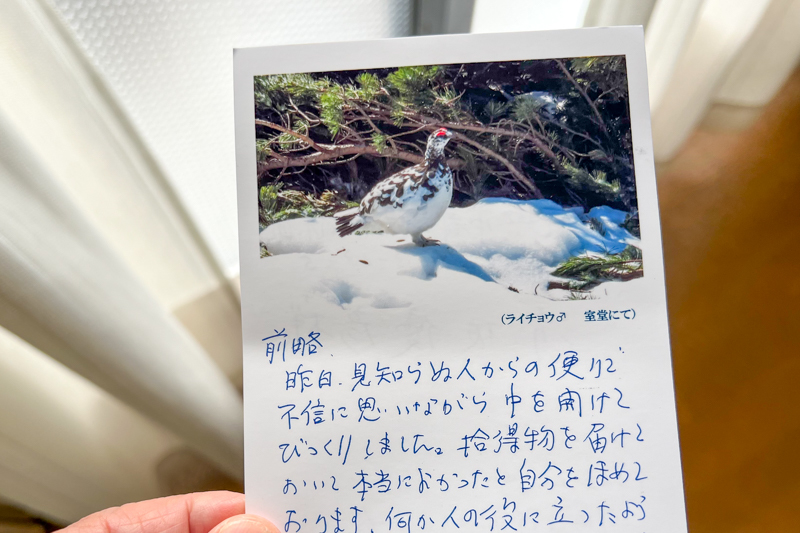 (ライチョウ♂ 室堂にて)
前略.
昨日、見知らぬ人からの便りで
不信に思いながら中を開けて
びっくりしました。拾得物を届けて
おいて本当によかったと自分をほめて
おります。何か人の役に立ったよう